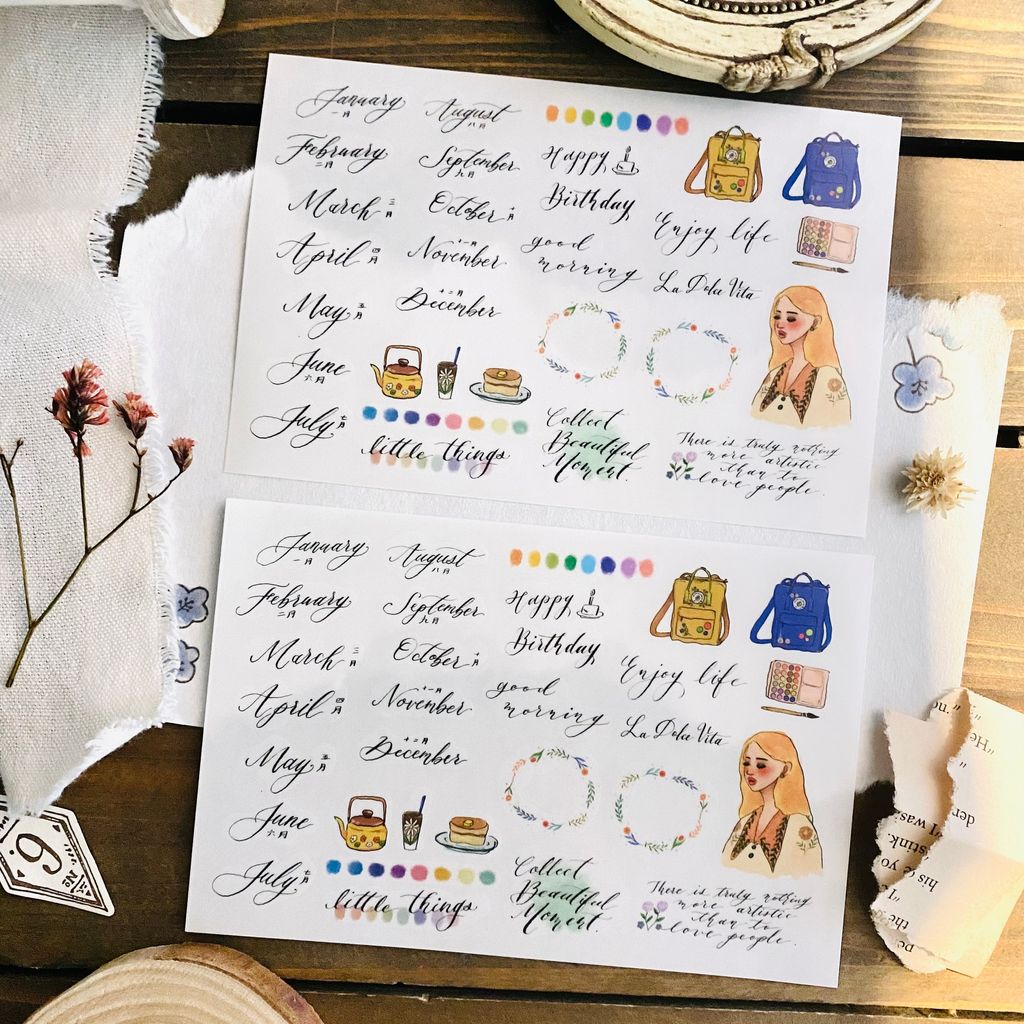 January
一月
February
二月
March 三月
April 四月
May 五月
June
六月
July 七月
August
八月
September
九月
October 十月
十一月
November
十二月
December
Happy
Birthday
good
morning
Enjoy life
La Dolce Vita
little things
Collect
Beautiful
Moment.
There is truly nothing
more artistic
than to
love people.
January
一月
February
二月
March 三月
April 四月
May 五月
June
六月
July 七月
August
八月
September
九月
October 十月
十一月
November
十二月
December
Happy
Birthday
good
morning
Enjoy life
La Dolce Vita
little things
Collect
Beautiful
Moment.
There is truly nothing
more artistic
than to
love people.
9
No
"He
der
"I was
stink.
his